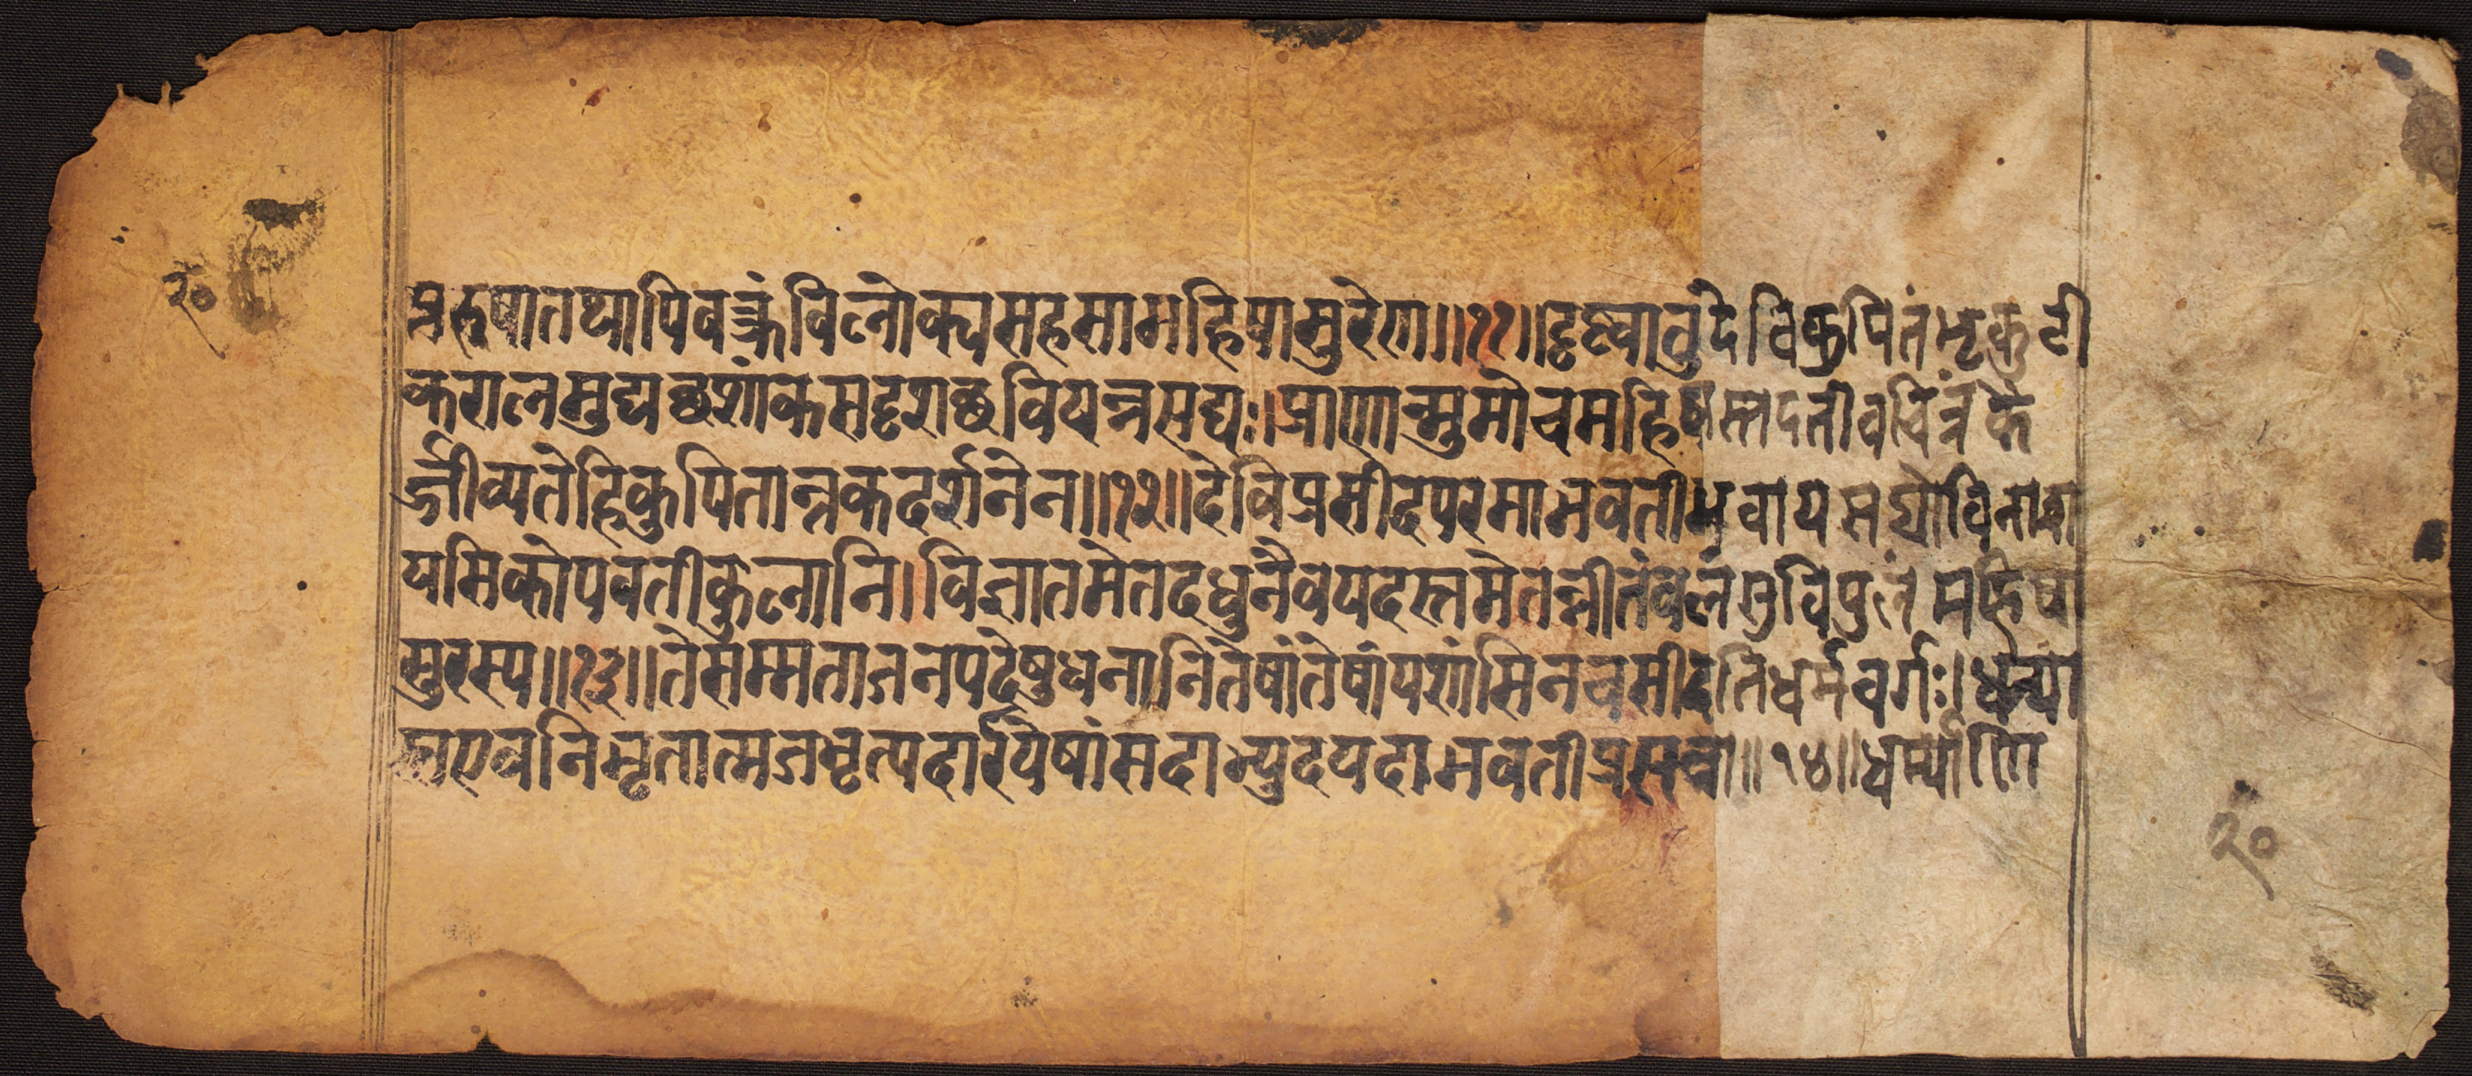 २०
प्तरुषातथापिवक्त्रंविलोक्यसहसामहिषासुरेण॥११॥दृष्ट्वातुदेविकुपितंभृकुटी
करालमुद्यच्छशांकसदृशच्छवियन्नसद्यः।प्राणान्मुमोचमहिषस्तदतीवचित्रंकै
र्जीव्यतेहिकुपितान्तकदर्शनेन॥१२॥देविप्रसीदपरमाभवतीभवायसद्योविनाश
यसिकोपवतीकुलानि।विज्ञातमेतदधुनैवयदस्तमेतन्नीतंबलंसुविपुलंमहिषा
सुरस्य॥१३॥तेसंमताजनपदेषुधनानितेषांतेषांयशांसिनचसीदतिधर्मवर्गः।धन्या
स्तएवनिभृतात्मजभृत्यदारायेषांसदाभ्युदयदाभवतीप्रसन्ना॥१४॥धर्म्याणि
२०